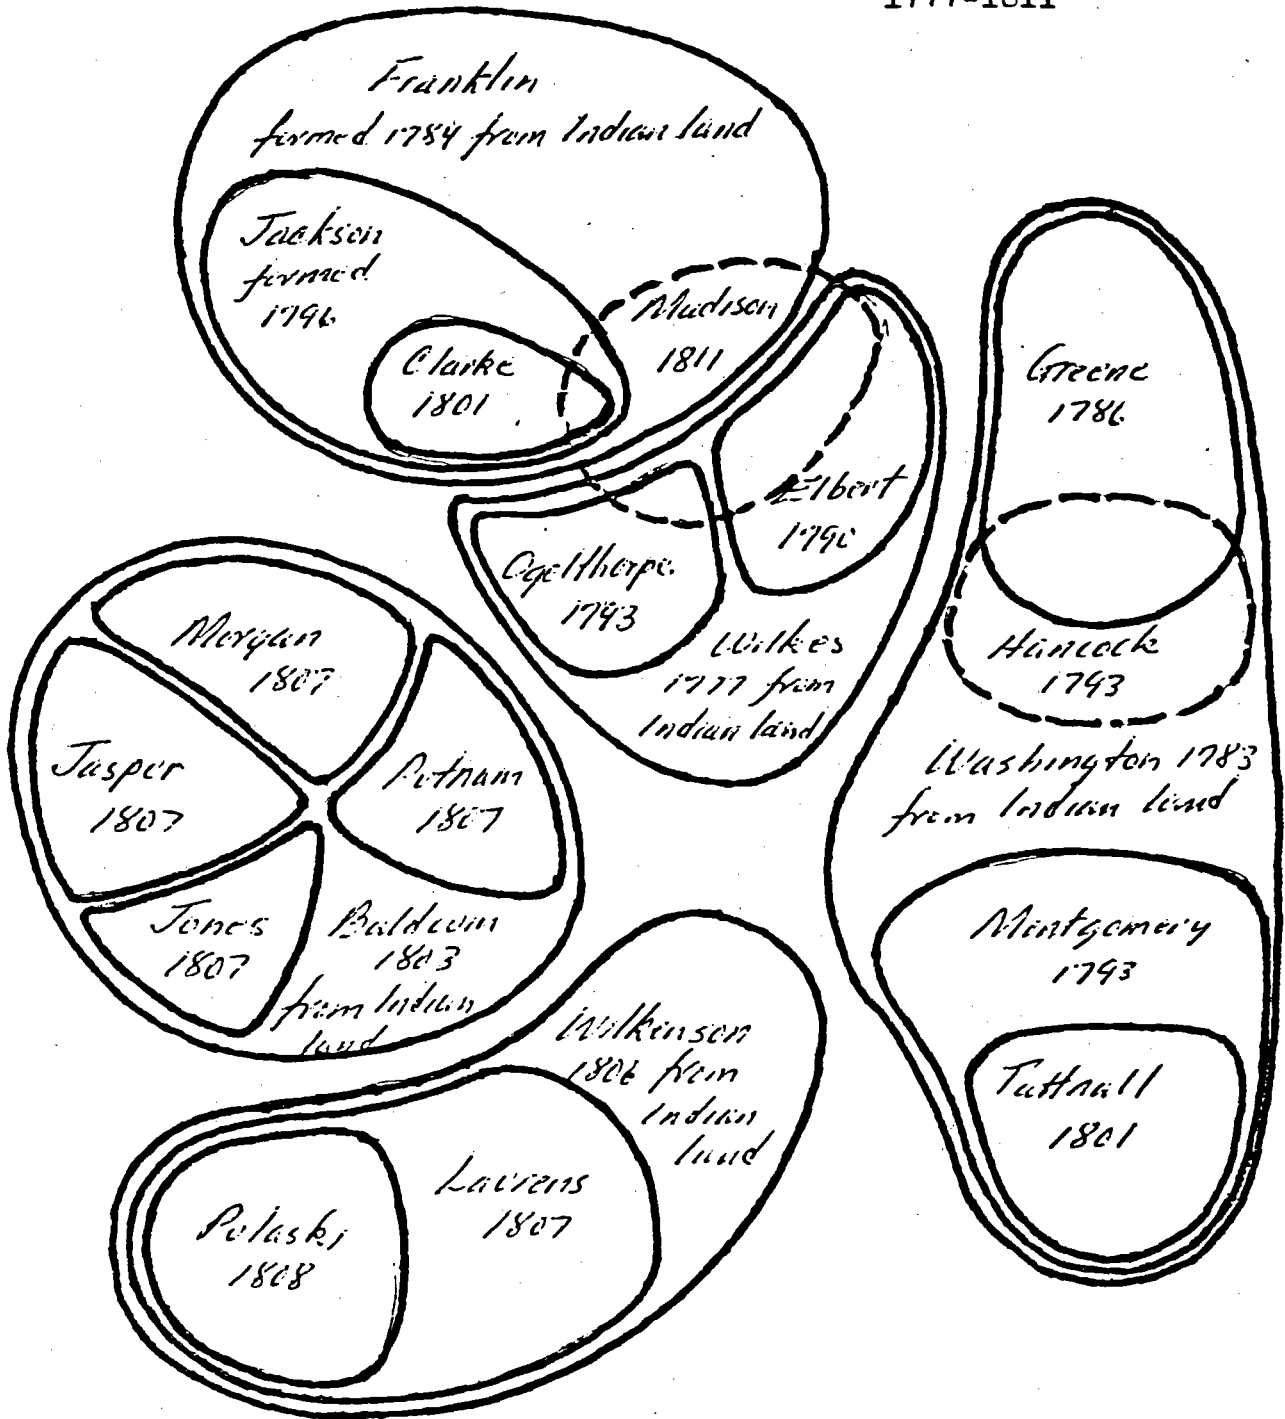 1777-1811
Franklin
formed 1784 from Indian land
Jackson
formed
1796
Clarke
1801
Madison
1811
Elbert
1790
Ogelthorpe
1793
Wilkes
1777 from
Indian land
Greene
1786
Hancock
1793
Washington 1783
from Indian land
Montgomery
1793
Tattnall
1801
Morgan
1807
Jasper
1807
Putnam
1807
Jones
1807
Baldwin
1803
from Indian
land
Wilkinson
1806 from
Indian
land
Laurens
1807
Pulaski
1808